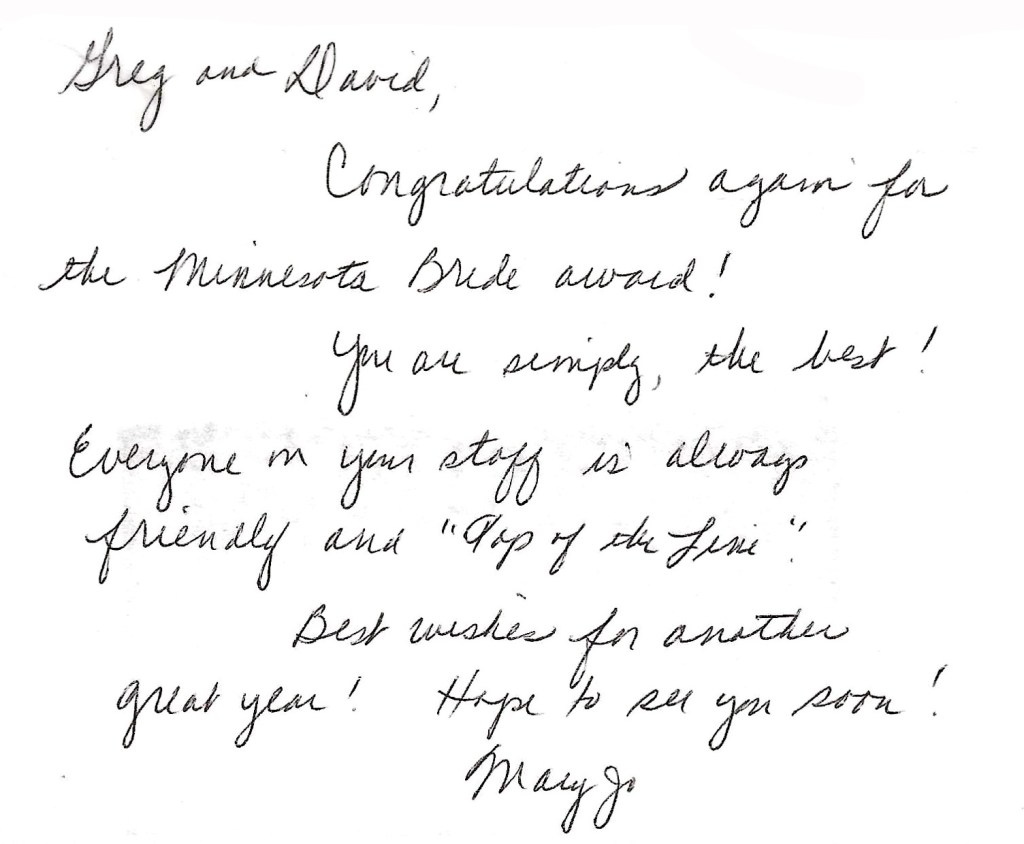 Greg and David,
Congratulations again for
the Minnesota Bride award!
You are simply, the best!
Everyone on your staff is always
friendly and "Top of the Line".
Best wishes for another
great year! Hope to see you soon!
Mary Jo